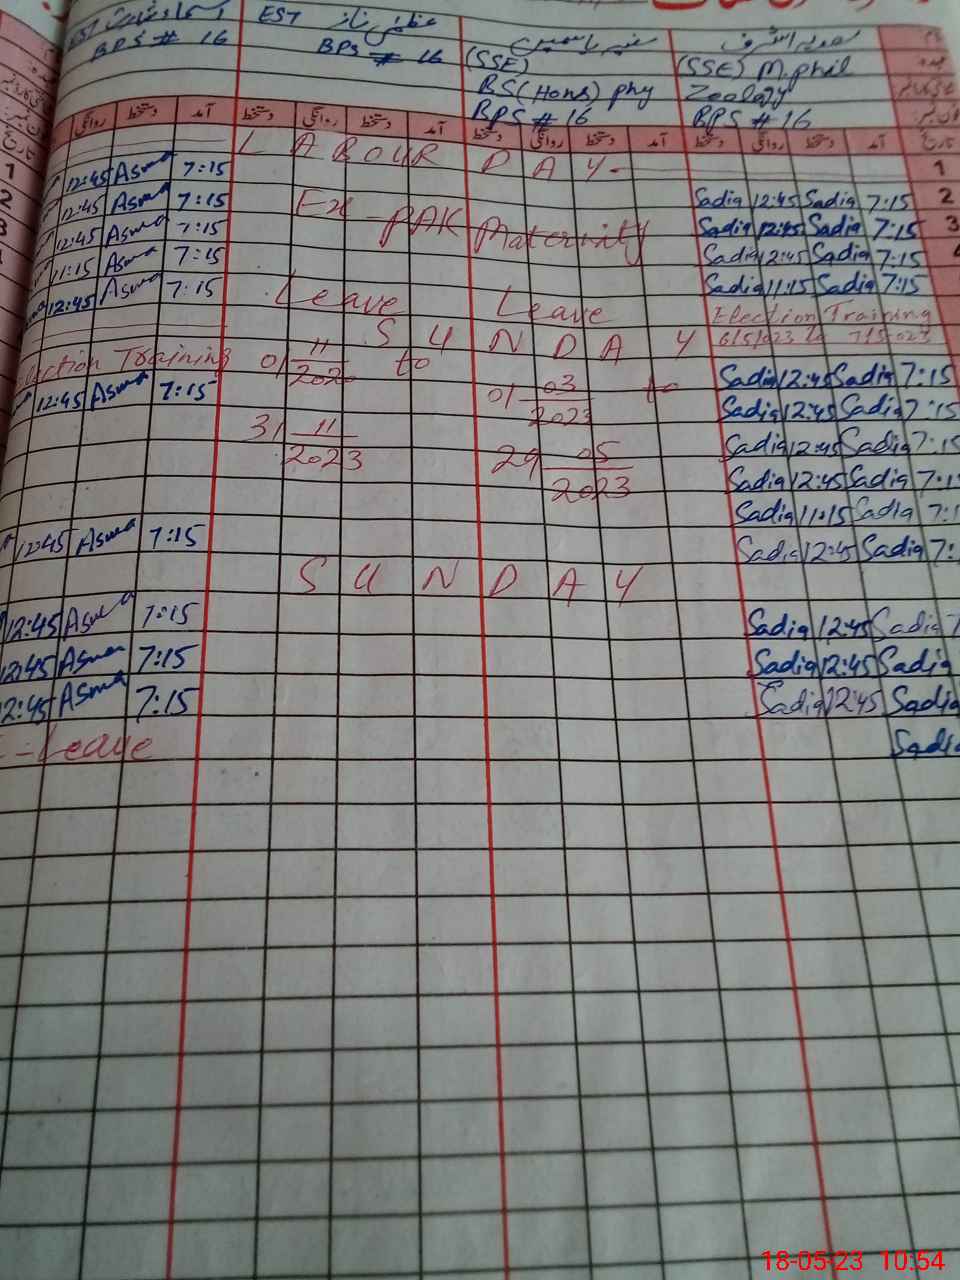 EST عظمیٰ ناز EST
BPS # 16 BPS # 16 (SSE) (SSE) M.phil
BS (Hons) phy Zoology
BPS # 16 BPS # 16
روانگی دستخط آمد دستخط روانگی دستخط آمد دستخط روانگی دستخط آمد دستخط روانگی دستخط آمد تاریخ
LABOUR DAY 1
12:45 Asma 7:15
12:45 Asma 7:15 Sadia 12:45 Sadia 7:15 2
12:45 Asma 7:15 Ex-PAK Maternity Sadia 12:45 Sadia 7:15 3
11:15 Asma 7:15 Sadia 12:45 Sadia 7:15
12:45 Asma 7:15 Leave Leave Sadia 11:15 Sadia 7:15
Election Training
SUNDAY 6/5/023 to 7/5/023
Election Training 01/11/2020 to 01/03/2023 to Sadia 12:45 Sadia 7:15
12:45 Asma 7:15 Sadia 12:45 Sadia 7:15
31/11/2023 29/05/2023 Sadia 12:45 Sadia 7:15
Sadia 12:45 Sadia 7:1
Sadia 11:15 Sadia 7:1
12:45 Asma 7:15 Sadia 12:45 Sadia 7:
SUNDAY
12:45 Asma 7:15 Sadia 12:45 Sadia 7
12:45 Asma 7:15 Sadia 12:45 Sadia
12:45 Asma 7:15 Sadia 12:45 Sadia
Leave Sadia
18-05-23 10:54